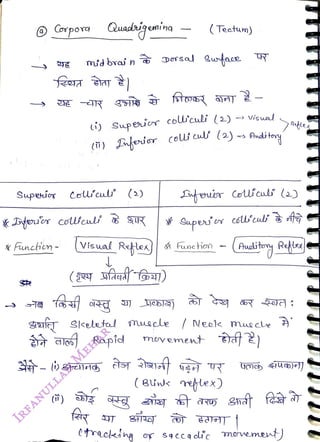 @ Corpora Quadrigemina — (Tectum)
→ यह midbrain के Dorsal Surface पर
स्थित होता है|
→ यह चार उभारो से मिलकर बना है –
(i) Superior colliculi (2) → Visual
(ii) Inferior colliculi (2) → Auditory
Reflex
Superior Colliculi (2)
Inferior Colliculi (2)
* Inferior colliculi के ऊपर
* Superior colliculi के नीचे
* Function - Visual Reflex
* Function - Auditory Reflex
↓
(दृश्य प्रतिवर्ती क्रिया)
→ जब किसी वस्तु या प्रकाश को देख कर स्वत:
अर्थात् Skeletal muscle / Neck muscle में
होने वाली Rapid movement होती है|
जैसे – (i) अचानक तेज रोशनी पड़ने पर पलक झपकाना
(Blink reflex)
(ii) कोई वस्तु आँख की तरफ आती दिखे तो
सिर या आँख को हटाना|
(tracking or saccadic movement)
IRFANULLAH MEHAR